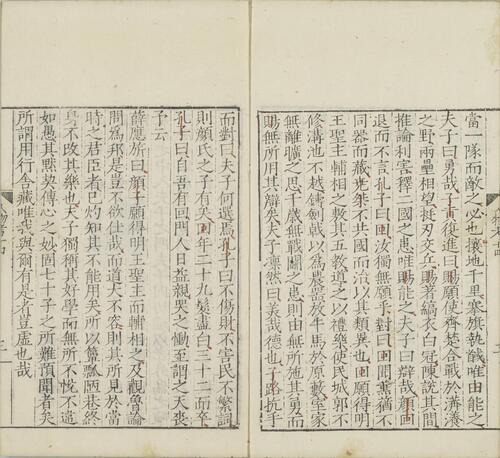 當一隊而敵之必也攘地千里搴旗執馘唯由能之
夫子曰勇哉子貢復進曰賜願使齊楚合戰於漭瀁
之野兩壘相望挺刃交兵賜著縞衣白冠陳說其間
推論利害釋二國之患唯賜能之夫子曰辯哉顏回
退而不言孔子曰回汝獨無願乎對曰回聞薰蕕不
同器而藏堯桀不共國而治以其類異也回願得明
王聖主輔相之敷其五教導之以禮樂使民城郭不
修溝池不越鑄劍戟以為農器放牛馬於原藪室家
無離曠之思千歲無戰鬪之患則由無所施其勇而
賜無所用其辯矣夫子凛然曰美哉德也子路抗手
而對曰夫子何選焉孔子曰不傷財不害民不繁詞
則顏氏之子有矣回年二十九髮盡白三十二而卒
孔子曰自吾有回門人日益親哭之慟至謂之天喪
予云
薛應旂曰顏子願得明王聖主而輔相之及觀魯論
問為邦是豈不欲仕哉而道大不容則其所見於當
時之君臣者已灼知其不能用矣所以簞瓢陋巷終
身不改其樂也夫子獨稱其好學而無所不悅不違
如愚其默契傳心之妙固七十子之所難預聞者矣
所謂用行舍藏唯我與爾有是者豈虛也哉